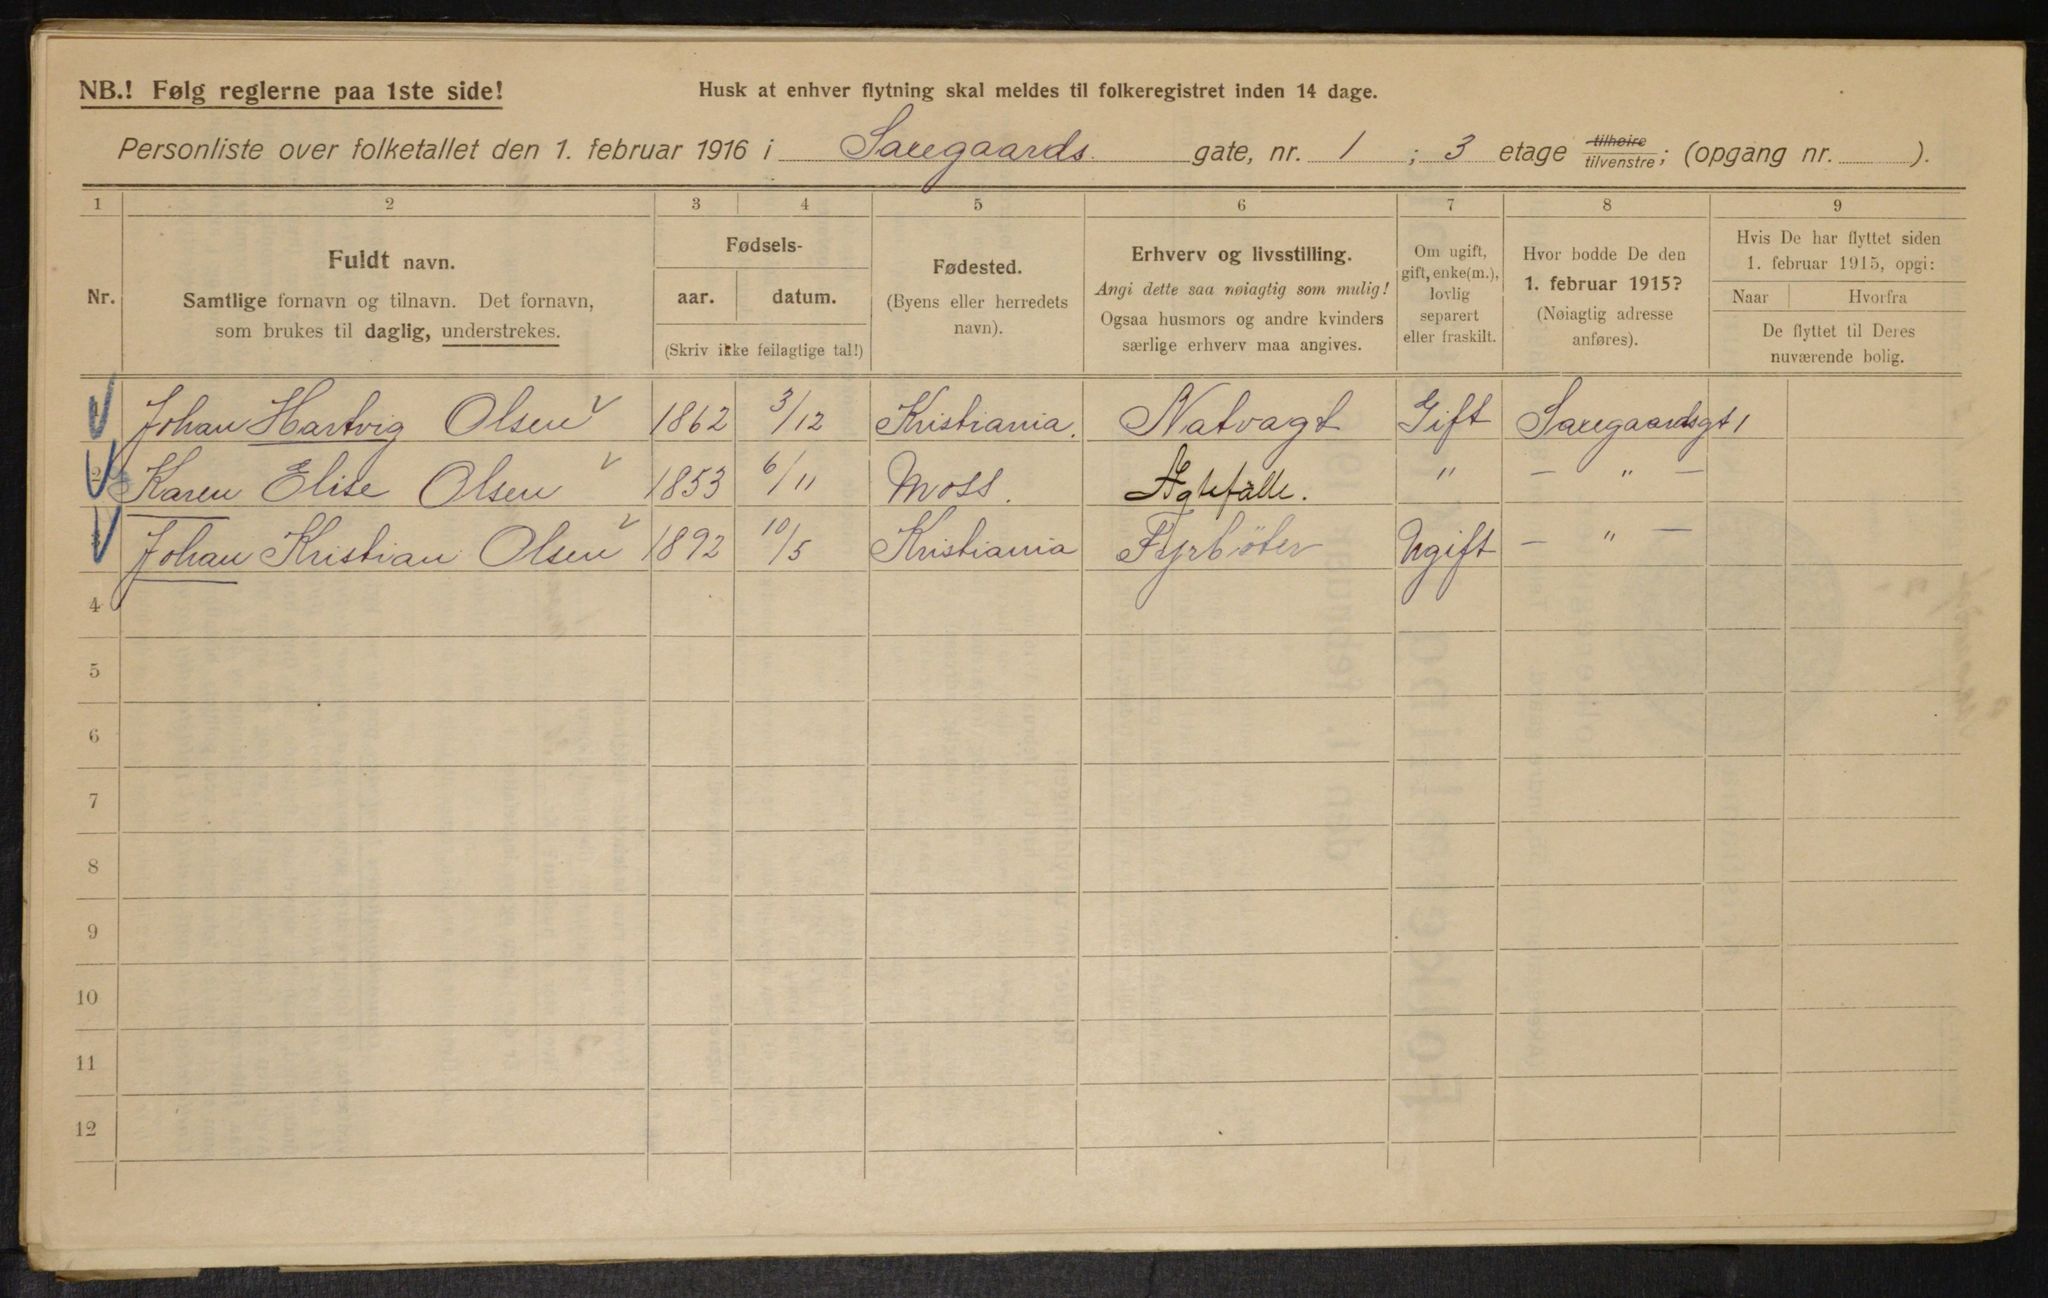 NB.! Følg reglerne paa 1ste side!
Husk at enhver flytning skal meldes til folkeregistret inden 14 dage.
Personliste over folketallet den 1. februar 1916 i Saxegaards gate, nr. 1 ; 3 etage tilhøire tilvenstre; (opgang nr. ).
1 2 3 4 5 6 7 8 9
Nr.
Fuldt navn.
Samtlige fornavn og tilnavn. Det fornavn,
som brukes til daglig, understrekes.
Fødsels-
aar. datum.
(Skriv ikke feilagtige tal!)
Fødested.
(Byens eller herredets
navn).
Erhverv og livsstilling.
Angi dette saa nøiagtig som mulig!
Ogsaa husmors og andre kvinders
særlige erhverv maa angives.
Om ugift,
gift, enke(m.),
lovlig
separert
eller fraskilt.
Hvor bodde De den
1. februar 1915?
(Nøiagtig adresse
anføres).
Hvis De har flyttet siden
1. februar 1915, opgi:
Naar Hvorfra
De flyttet til Deres
nuværende bolig.
1 Johan Hartvig Olsen 1862 3/12 Kristiania. Natvagt Gift Saxegaardsgt 1
2 Karen Elise Olsen 1853 6/11 Moss. Ægtefälle. " — " —
3 Johan Kristian Olsen 1892 10/5 Kristiania Fyrböter Ugift — " —
4
5
6
7
8
9
10
11
12